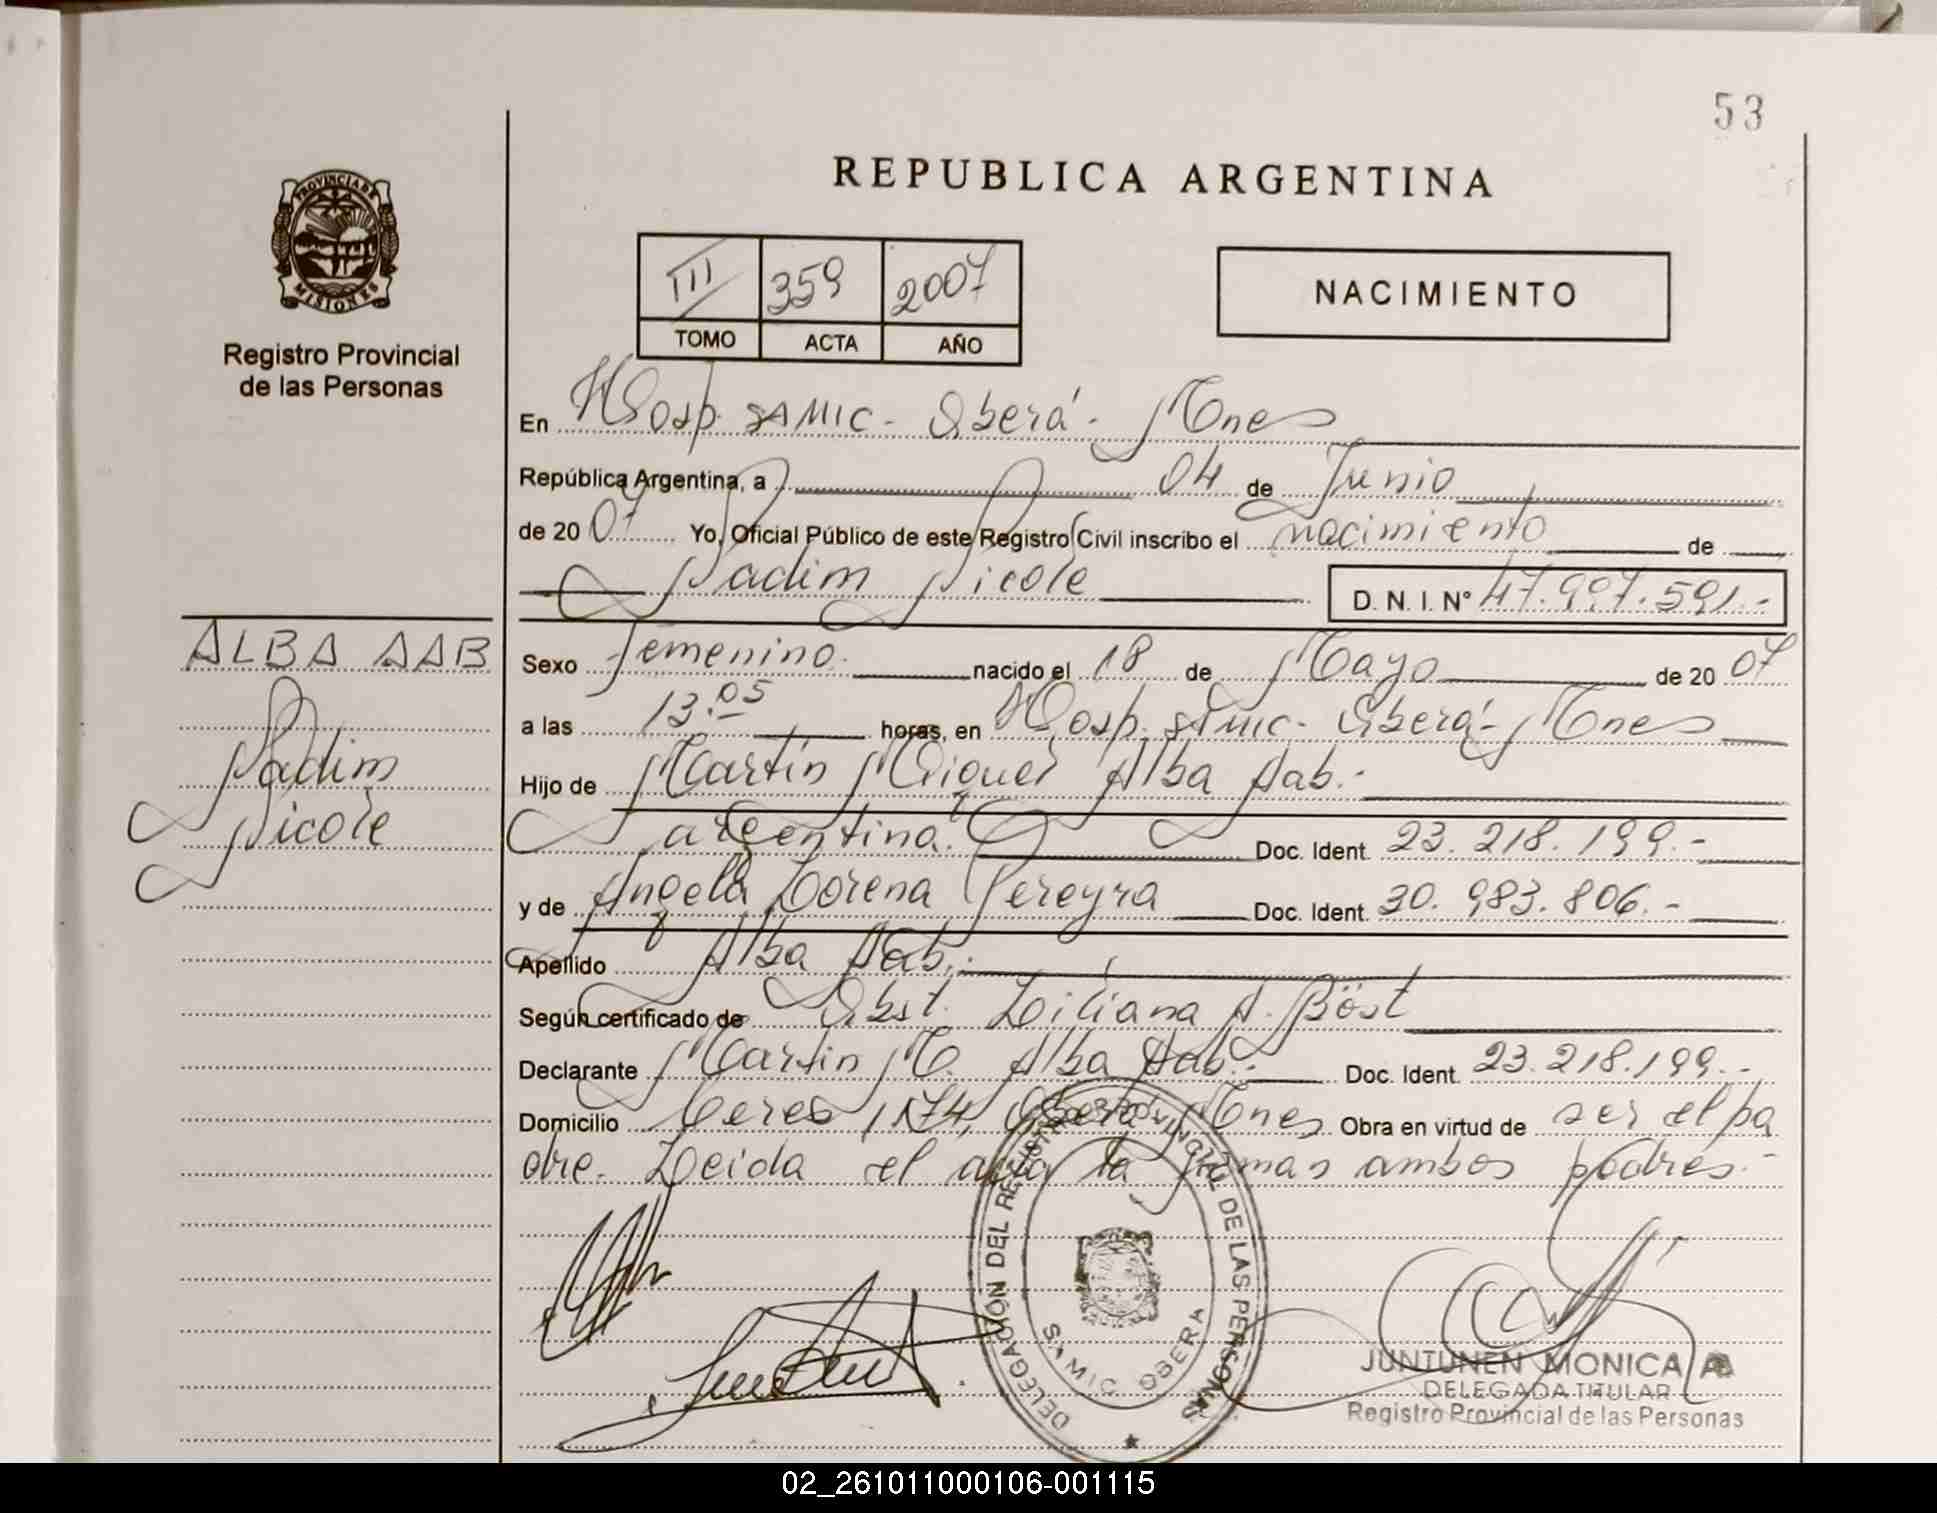 53
REPUBLICA ARGENTINA
PROVINCIA DE
MISIONES
Registro Provincial
de las Personas
III 359 2007
TOMO ACTA AÑO
NACIMIENTO
En Hosp. SAMIC - Oberá - Mnes
República Argentina, a 04 de Junio
de 2007 Yo, Oficial Público de este Registro Civil inscribo el nacimiento de
Nadim Nicole D. N. I. Nº 47.997.591.-
ALBA AAB
Nadim
Nicole
Sexo Femenino. nacido el 18 de Mayo de 2007
a las 13.05 horas, en Hosp. SAMIC - Oberá - Mnes
Hijo de Martín Miguel Alba Aab.-
argentina. Doc. Ident. 23.218.199.-
y de Angela Lorena Pereyra Doc. Ident. 30.983.806.-
Apellido Alba Aab.
Según certificado de Obst. Liliana A. Böst
Declarante Martín M. Alba Aab.- Doc. Ident. 23.218.199.-
Domicilio Ceres 1174, Oberá Mnes Obra en virtud de ser el pa
dre. Leida el acta la firman ambos padres.-
DELEGACIÓN DEL REGISTRO PROVINCIAL DE LAS PERSONAS
SAMIC OBERA
JUNTUNEN MONICA A
DELEGADA TITULAR
Registro Provincial de las Personas
02_261011000106-001115